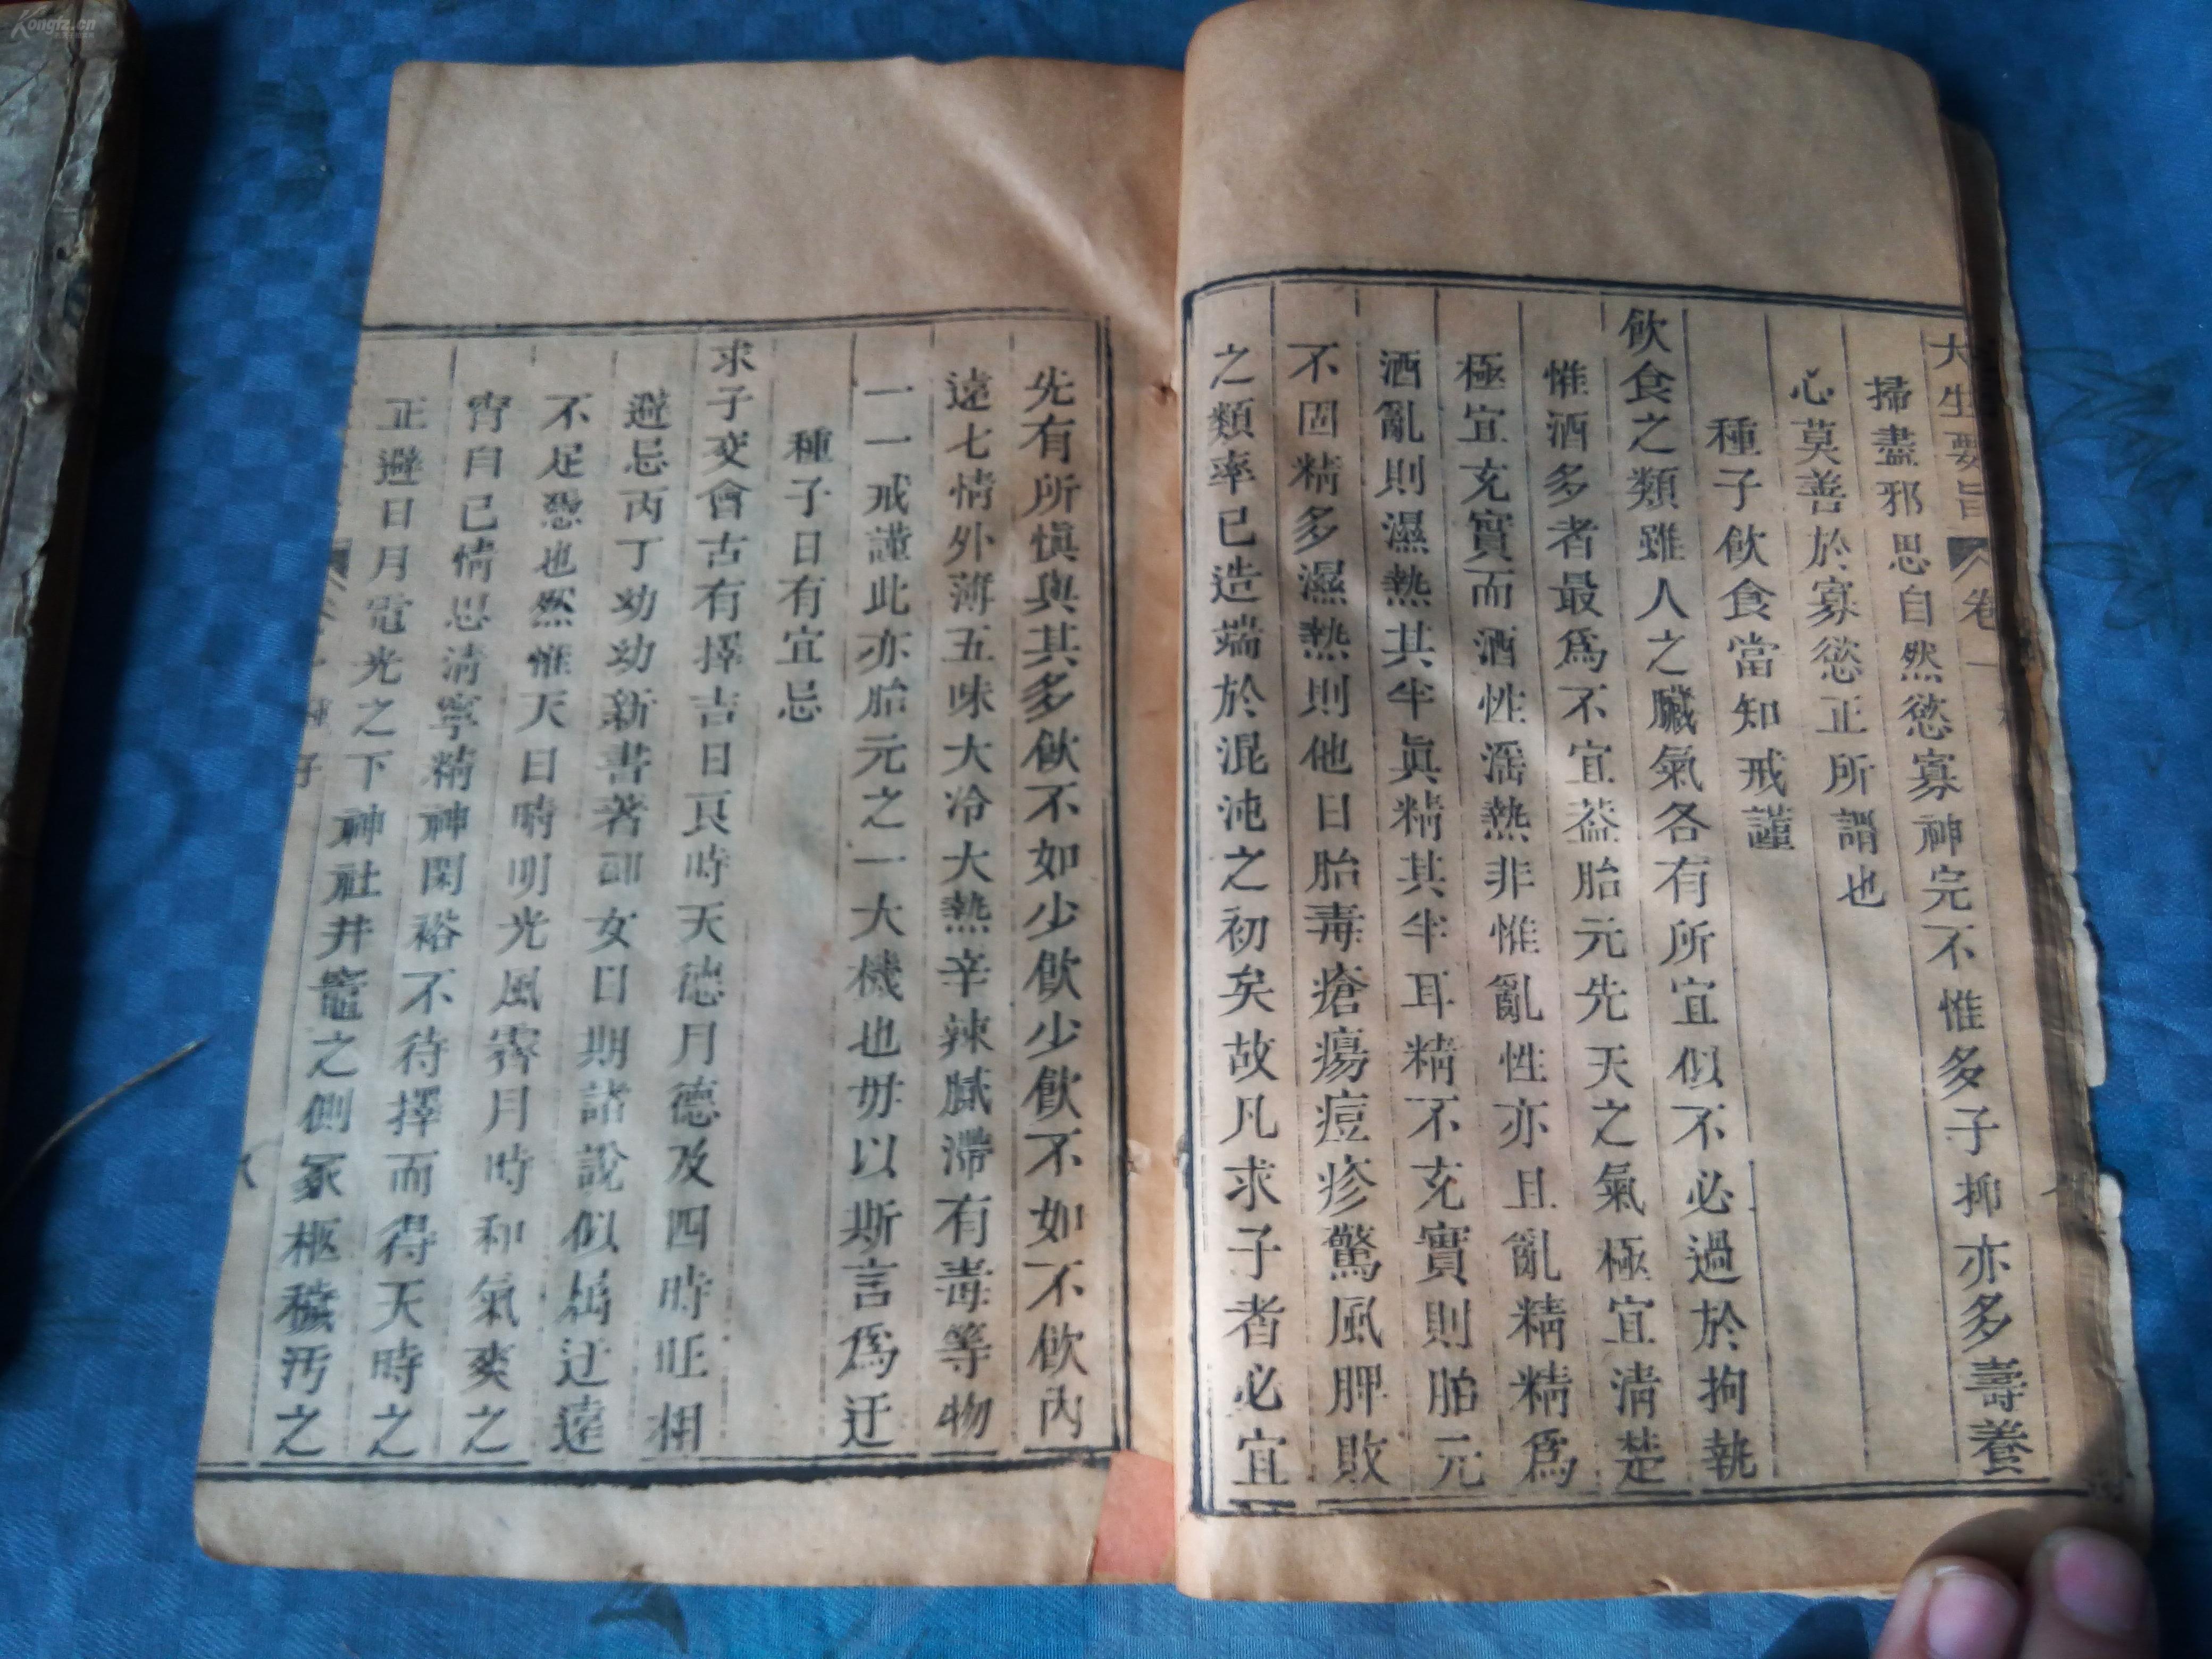 Kongfz.cn
大生要旨 卷一
掃盡邪思自然慾寡神完不惟多子抑亦多壽養
心莫善於寡慾正所謂也
種子飲食當知戒謹
飲食之類雖人之臟氣各有所宜似不必過於拘執
惟酒多者最爲不宜葢胎元先天之氣極宜清楚
極宜充實而酒性滛熱非惟亂性亦且亂精精爲
酒亂則濕熱其半眞精其半耳精不充實則胎元
不固精多濕熱則他日胎毒瘡瘍痘疹驚風脾敗
之類率已造端於混沌之初矣故凡求子者必宜
先有所愼與其多飲不如少飲少飲不如不飲內
遠七情外薄五味大冷大熱辛辣膩滯有毒等物
一一戒謹此亦胎元之一大機也毋以斯言爲迂
種子日有宜忌
求子交會古有擇吉日良時天德月德及四時旺相
避忌丙丁幼幼新書著 女日期諸說似屬迂遠
不足慿也然惟天日晴明光風霽月時和氣爽之
宵自己情思清寧精神閑裕不待擇而得天時之
正避日月電光之下神社井竈之側冢柩穢汚之
種子
八